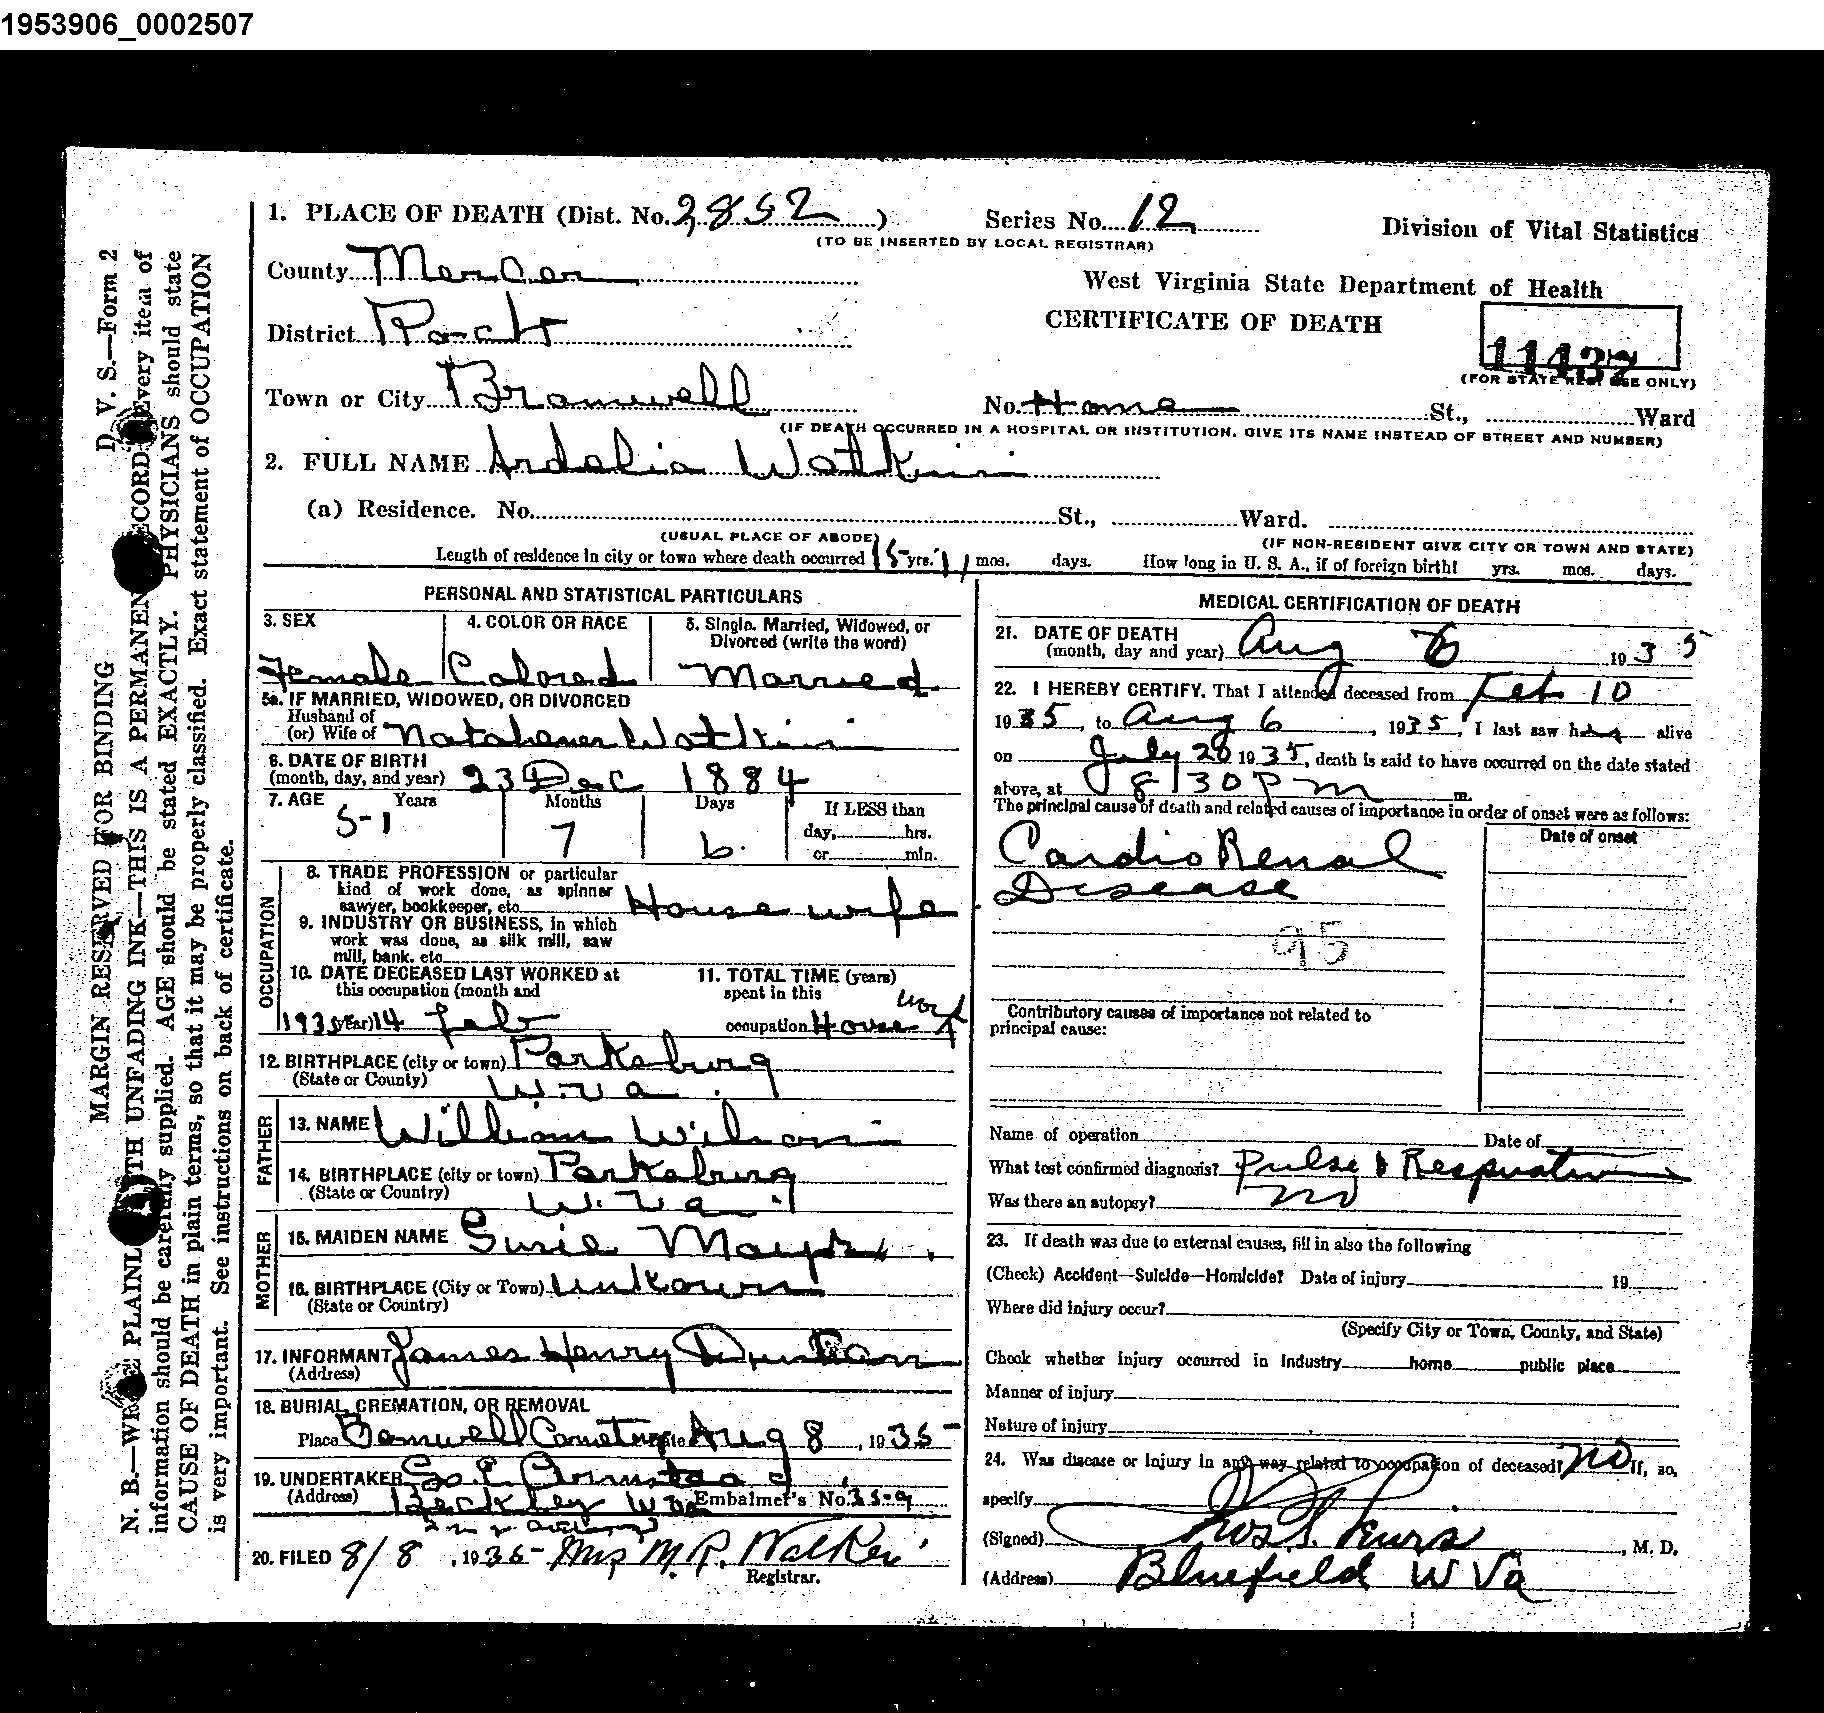 1953906_0002507
D. V. S.—Form 2
MARGIN RESERVED FOR BINDING
N. B.—WRITE PLAINLY WITH UNFADING INK—THIS IS A PERMANENT RECORD. Every item of
information should be carefully supplied. AGE should be stated EXACTLY. PHYSICIANS should state
CAUSE OF DEATH in plain terms, so that it may be properly classified. Exact statement of OCCUPATION
is very important. See instructions on back of certificate.
1. PLACE OF DEATH (Dist. No. 2852) Series No. 12 Division of Vital Statistics
(TO BE INSERTED BY LOCAL REGISTRAR)
County Mercer
West Virginia State Department of Health
District Rock
CERTIFICATE OF DEATH
11437
(FOR STATE REG. USE ONLY)
Town or City Bramwell No. Home St., Ward
(IF DEATH OCCURRED IN A HOSPITAL OR INSTITUTION, GIVE ITS NAME INSTEAD OF STREET AND NUMBER)
2. FULL NAME Ardelia Watkins
(a) Residence. No. St., Ward.
(USUAL PLACE OF ABODE) (IF NON-RESIDENT GIVE CITY OR TOWN AND STATE)
Length of residence in city or town where death occurred 15 yrs. 11 mos. days. How long in U. S. A., if of foreign birth? yrs. mos. days.
PERSONAL AND STATISTICAL PARTICULARS
3. SEX 4. COLOR OR RACE 5. Single, Married, Widowed, or
Divorced (write the word)
Female Colored Married
5a. IF MARRIED, WIDOWED, OR DIVORCED
Husband of
(or) Wife of Watkins
6. DATE OF BIRTH
(month, day, and year) 23 Dec 1884
7. AGE Years Months Days If LESS than
51 7 6. day, hrs.
or min.
OCCUPATION
8. TRADE PROFESSION or particular
kind of work done, as spinner
sawyer, bookkeeper, etc. House wife
9. INDUSTRY OR BUSINESS, in which
work was done, as silk mill, saw
mill, bank. etc
10. DATE DECEASED LAST WORKED at 11. TOTAL TIME (years)
this occupation (month and spent in this
year) 1935 14 Feb occupation House work
12. BIRTHPLACE (city or town) Parksburg
(State or County) W. Va.
FATHER
13. NAME William Wilson
14. BIRTHPLACE (city or town) Parksburg
(State or Country) W. Va.
MOTHER
15. MAIDEN NAME Susie
16. BIRTHPLACE (City or Town) Unkown
(State or Country)
17. INFORMANT James Henry
(Address)
18. BURIAL, CREMATION, OR REMOVAL
Place Bramwell Cemetery Date Aug 8, 1935
19. UNDERTAKER Armstead
(Address) Beckley W Va Embalmer's No. 359
20. FILED 8/8, 1935 Mrs M. R. Walker
Registrar.
MEDICAL CERTIFICATION OF DEATH
21. DATE OF DEATH
(month, day and year) Aug 6 1935
22. I HEREBY CERTIFY, That I attended deceased from Feb 10
1935, to Aug 6, 1935, I last saw her alive
on July 28 1935, death is said to have occurred on the date stated
above, at 8:30 P m m.
The principal cause of death and related causes of importance in order of onset were as follows:
Date of onset
Cardio Renal
Disease
95
Contributory causes of importance not related to
principal cause:
Name of operation Date of
What test confirmed diagnosis? Pulse & Respiration
Was there an autopsy? No
23. If death was due to external causes, fill in also the following
(Check) Accident—Suicide—Homicide? Date of injury 19
Where did injury occur?
(Specify City or Town, County, and State)
Check whether injury occurred in industry home public place
Manner of injury
Nature of injury
24. Was disease or injury in any way related to occupation of deceased? No If, so,
specify
(Signed) , M. D.
(Address) Bluefield W Va